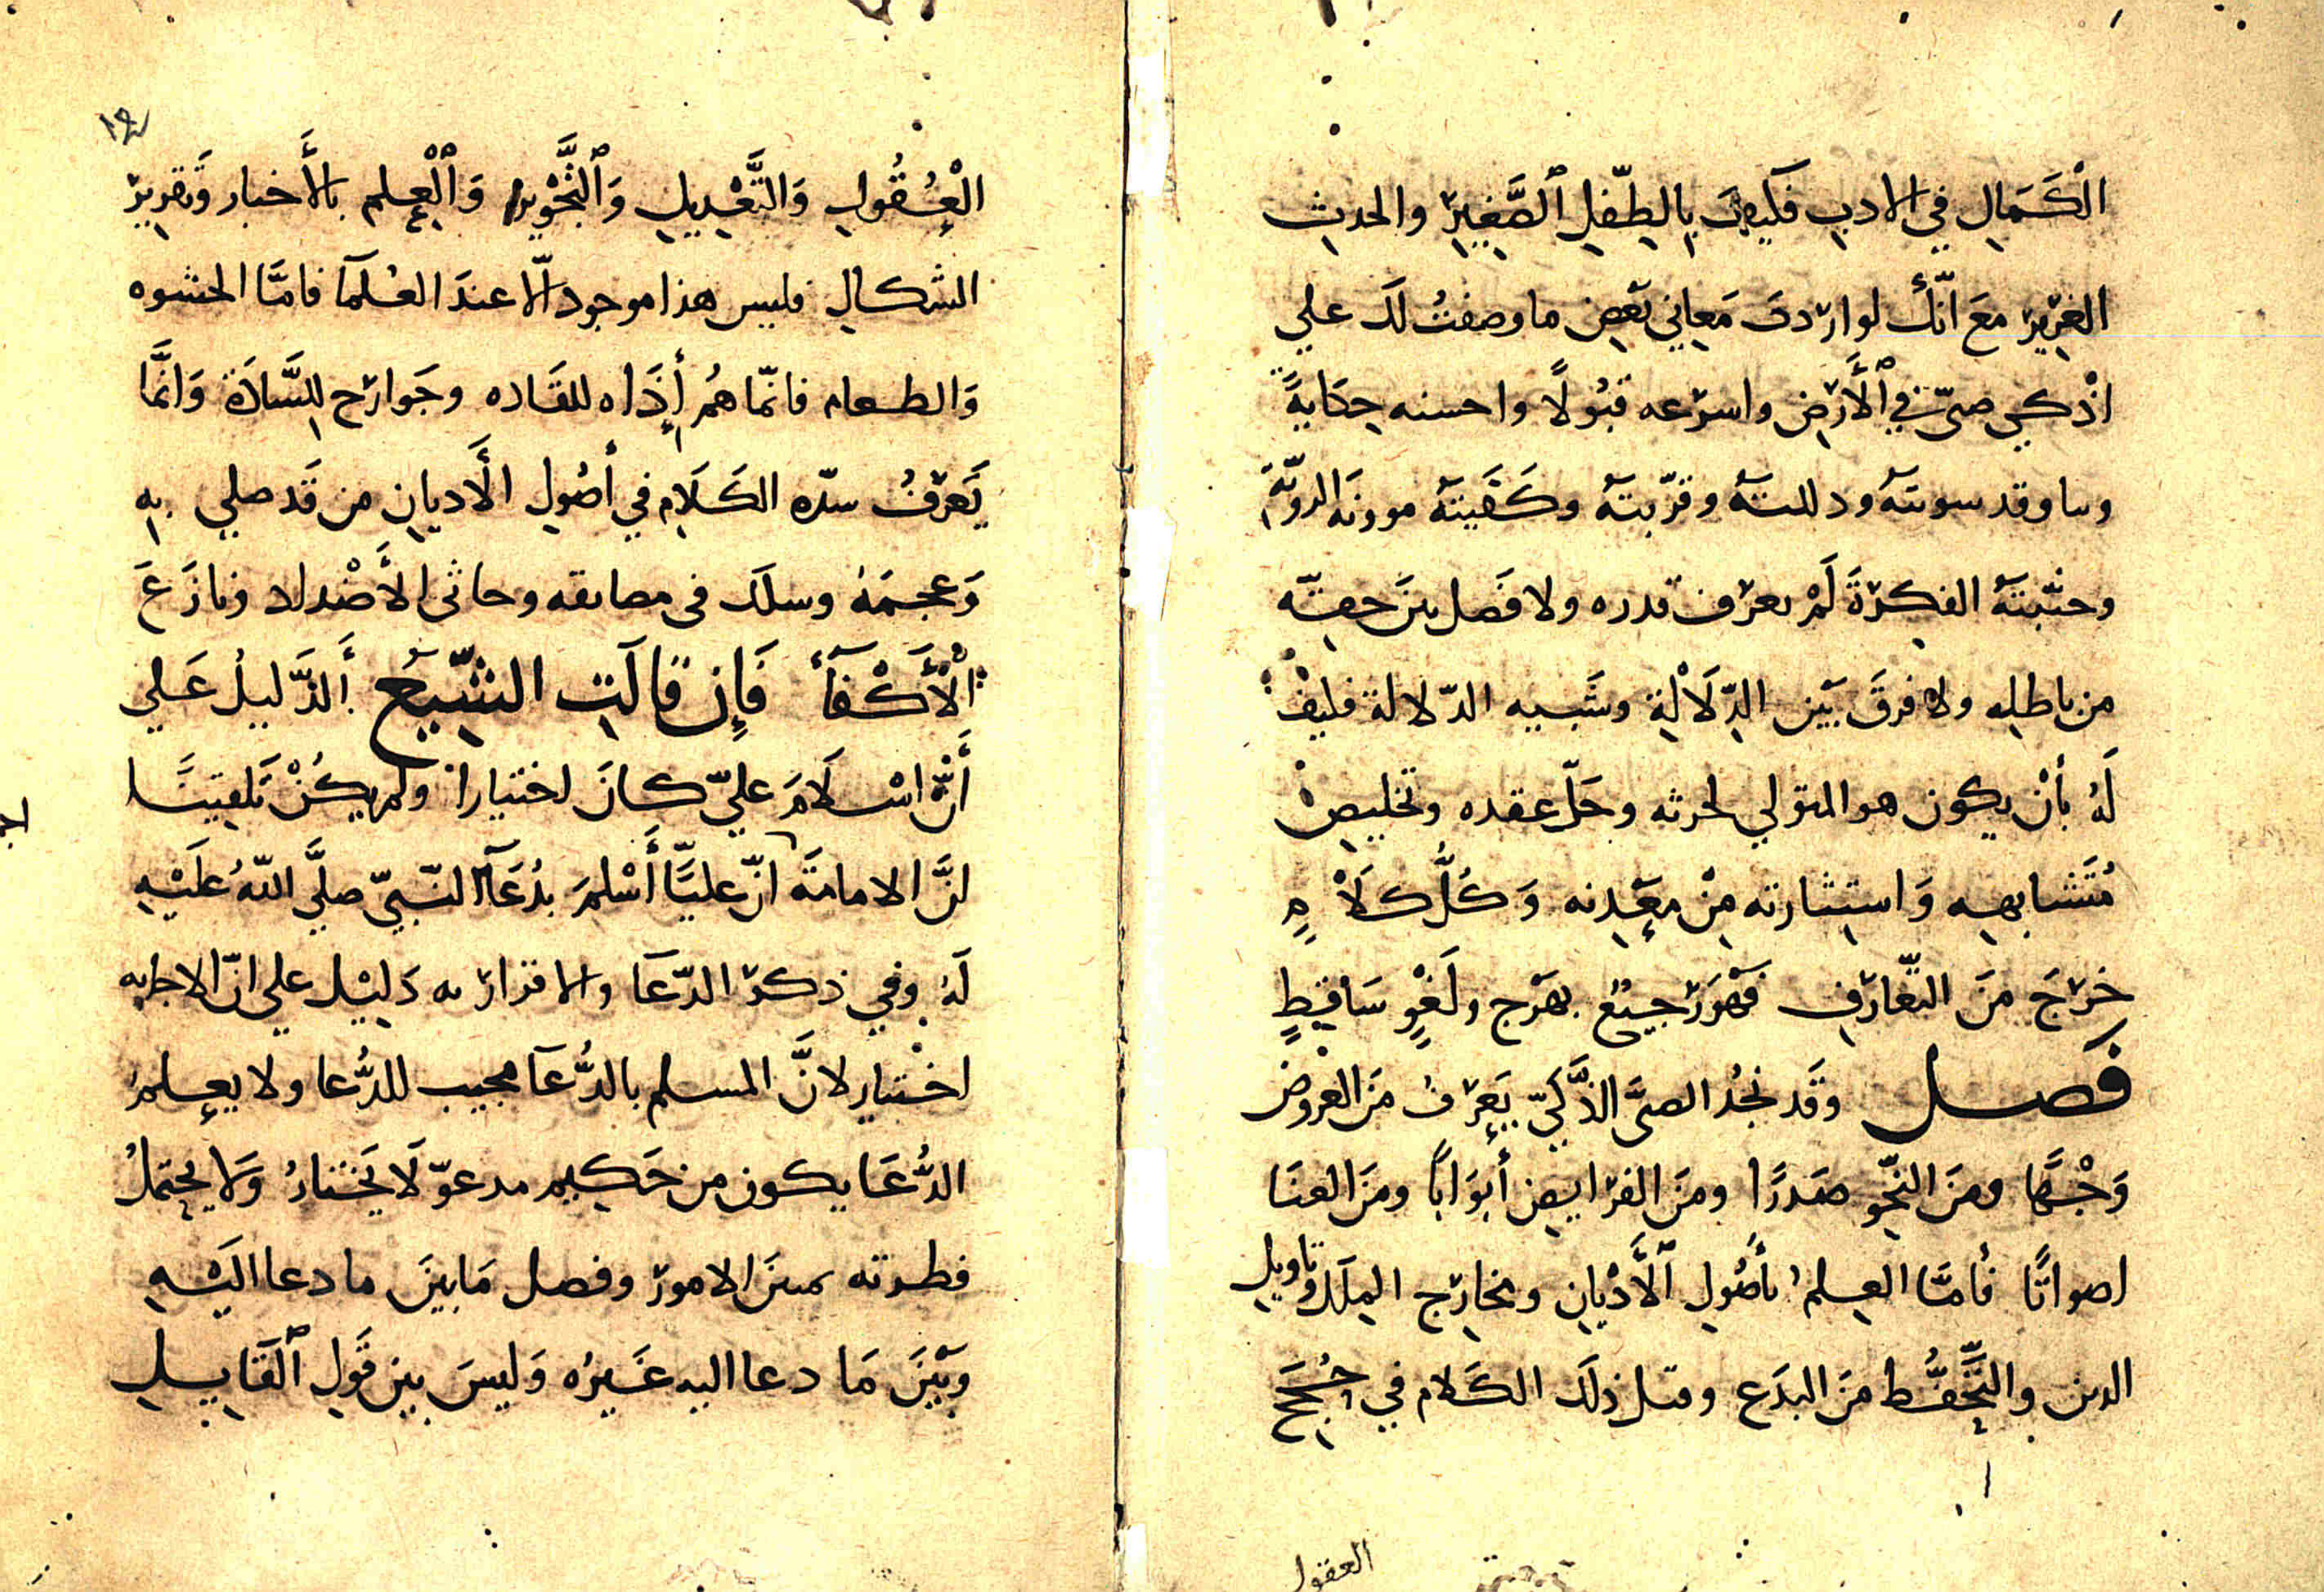 الْكَمَالِ في الادبِ فَكَيفَ بِالطِّفلِ ٱلصَّغِيرِ والحدثِ
الغرِيرِ مَعَ انّكَ لو اردتَ مَعاني بَعضِ ما وصفتُ لكَ علي
اذْكي صبىّ في ٱلأَرضِ واسرعه قبُولًا واحسنه حِكايةً
وبيانا وقد سويتَهُ ودللتَهُ وقرّبتَهُ وكَفَيتَهُ موونَه الرويّةِ
وجنّبتَهُ الفكرةَ لَمْ يعرف قدره ولا فَصَل بينَ حقِّه
من باطلِه ولا فرقَ بَيْن الدِّلَالْةِ وشَبيه الدّلالة فكيفْ
لَهُ بأنْ يكون هو المتولي لتجربته وحَلّ عقده وتخليصْ
مُتَشابهِه وَاستِثارته مِنْ مَعدِنه وَكُلُّ كلَامٍ
خرجَ منَ التعَّارفِ فَهْوَ رَجيعْ بهرج ولَغْوٍ سَاقِطٍ
فَصل وقَد نجُد الصبىَّ الذَّكيّ يَعرفُ منَ العروض
وَجْهًا ومنَ النَّحوِ صَدرًا ومنَ الفرايضِ أبوَابًا ومنَ الغنَا
اصواتًا فأمَّا العِلمُ بأصُولِ ٱلأَدْيانِ ومخارجِ المِلَلِ وتاويلِ
الدين والتَّحَفُّظِ منَ البدَعِ وقبل ذلَكَ الكَلام في حُججِ
العقول
١٢
الْعُقُولِ وَالتَّعْدِيلِ وَٱلتَّجْوِيرِ وَٱلْعِلمِ بالأَخبار وَتقريرِ
الشكالِ فليس هذا موجود الّا عندَ العُلمَآ فامَّا الحشوه
وَالطعام فانّما هُم أَدَاه للقَاده وجَوارح لِلسَّادَةِ وَانَّمَا
يَعرفُ سدّه الكَلَامِ في أصُولِ الأَديانِ من قَد صلي بِه
وَعجمَهُ وسلكَ فى مصايقه وجاثى الأَضْداد ونازَعَ
الْأَكْفَآءَ فَإِن قالَتِ الشِّيَعُ ألدَّليلُ عَلي
أَنَّ اسْلَامَ عليّ كانَ اختيارا ولم يكُنْ تَلقينًا
انَّ الامامةَ انّ عليًّا أَسْلمَ بدُعَآ النّبيّ صلَّي اللّهُ عَليْهِ
لَهُ وفي ذكر الدّعَآ والاقرار به دَلِيْل علي انّ الاجابه
اختيار لانَّ المسلم بالدُّعآ مجيب للدُّعا ولا يعلمُ
الدُّعَا يكون من حَكيم مدعوّ لَا يَختارُ وَلَا يحتملُ
فطرته تمييزَ الامور وفصل مَا بينَ ما دعا اليْهِ
وَبَيْنَ مَا دعا اليه غَيرُه وَليسَ بين قَولِ ٱلْقَايلِ